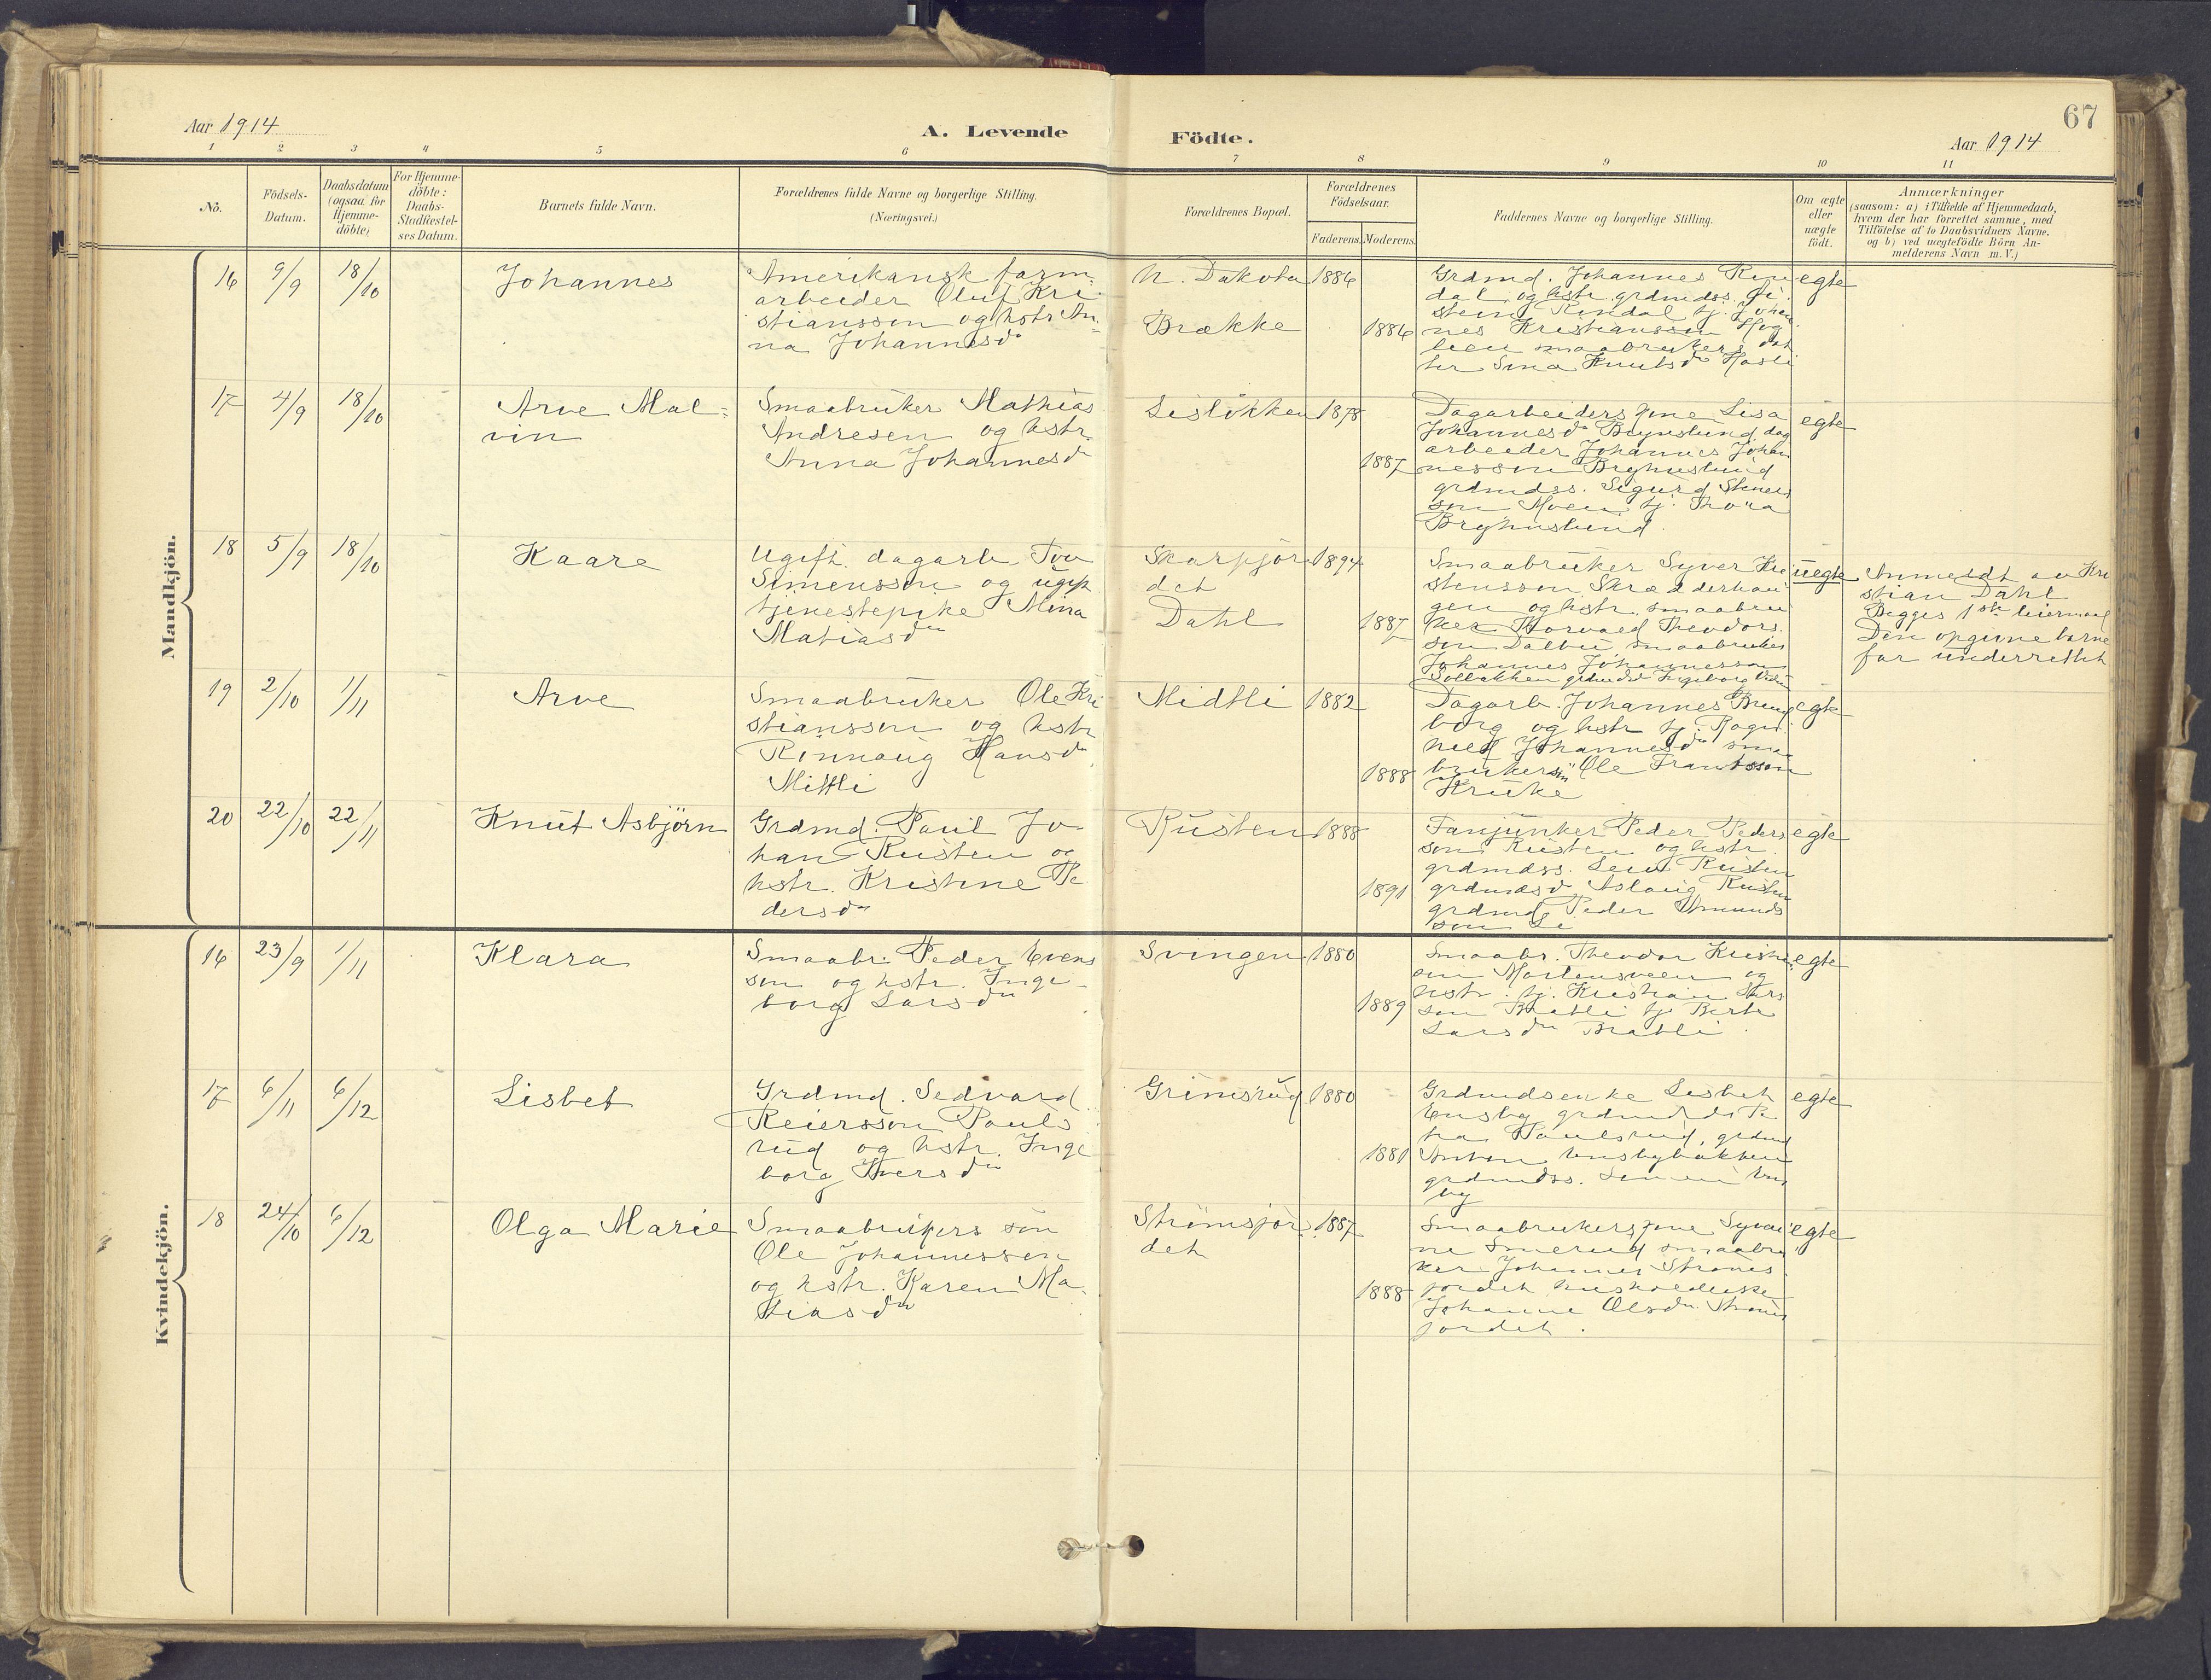 67
Aar 1914
A. Levende
Födte.
Aar 1914
1 2 3 4 5 6 7 8 9 10 11
No.
Födsels-
Datum.
Daabsdatum
(ogsaa for
Hjemme-
döbte)
For Hjemme-
döbte:
Daabs-
Stadfæstel-
ses Datum.
Barnets fulde Navn.
Forældrenes fulde Navne og borgerlige Stilling.
(Næringsvei.)
Forældrenes Bopæl.
Forældrenes
Födselsaar.
Faderens. Moderens.
Faddernes Navne og borgerlige Stilling.
Om ægte
eller
uægte
födt.
Anmærkninger
(saasom: a) i Tilfælde af Hjemmedaab,
hvem der har forrettet samme, med
Tilföielse af to Daabsvidners Navne.
og b) ved uægtefödte Börn An-
melderens Navn m. V.)
Mandkjön.
16 9/9 18/10
Johannes
Amerikansk farm
arbeider Oluf Kri
stiansson og hstr An-
na Johannesdr
N. Dakota
Brække
1886
1886
Grdmd. Johannes Rin
dal og hstr. grdmdss.
stein Rindal tj. Johan
nes Kristiansson
smaabrukers dat
ter Hasli
egte
17 4/9 18/10
Arve Mal-
vin
Smaabruker Mathias
Andresen og hstr.
Anna Johannesdr
Lislökken
1878
1887
Dagarbeiders kone Lisa
Johannesdr Bryhnslund dag
arbeider Johannes Johan
nesson Bryhnslund
grdmdss. Sigurd Steners
son Moen tj. Thora
Bryhnslund.
egte
18 5/9 18/10
Kaare
Ugift. dagarb.
Simensson og ugift
tjenestepike Mina
Matiasdr
Skarpjor
det
Dahl
1894
1887
Smaabruker Syver Kri
stensson Skrædderhau
gen og hstr. smaabru
ker Thorvald Theodors
son Dalbu smaabruker
Johannes Johannesson
Solbakken Ingeborg
uegte
Anmeldt av Kri
stian Dahl
Begges 1ste leiermaal
Den opgivne barne
far underrettet
19 2/10 1/11
Arve
Smaabruker Ole Kri
stiansson og hstr
Rønnaug Hansdr
Mittli
Midtli
1882
1888
Dagarb. Johannes Breng
borg og hstr tj. Ragn
hild Johannesdr sma
brukersön Ole Frantsson
Kruke
egte
20 22/10 22/11
Knut Asbjörn
Grdmd. Paul Jo
han Rusten og
hstr. Kristine Pe
dersdr
Rusten
1888
1891
Fanjunker Peder Peders
son Rusten og hstr.
grdmdss. Rusten
grdmdsd Aslaug Rusten
grdmd. Peder Amunds
son
egte
Kvindekjön.
16 23/9 1/11
Klara
Smaabr. Peder Evens
son og hstr. Inge-
borg Larsdr
Svingen
1880
1889
Smaabr. Theodor
Mortensveen og
hstr. tj. Kristian Lars
son Bratli tj. Berte
Larsdr Bratli.
egte
17 6/11 6/12
Lisbet
Grdmd. Sedvard
Reiersson Pauls
rud og hstr. Inge
borg Iversdr
Grimsrud
1880
1881
Grdmdsenke Lisbet
Ensby
Paulsrud, grdmd
Anton Ensbybakken
grdmdss. Simen Ens
by
egte
18 24/10 6/12
Olga Marie
Smaabrukers sön
Ole Johannessen
og hstr. Karen Ma-
tiasdr
Strömsjor
det
1887
1888
Smaabrukers kone Syver
ne smaabru
ker Johannes Ströms
jordet husholderske
Johanne Olsdr. Ströms
jordet.
egte